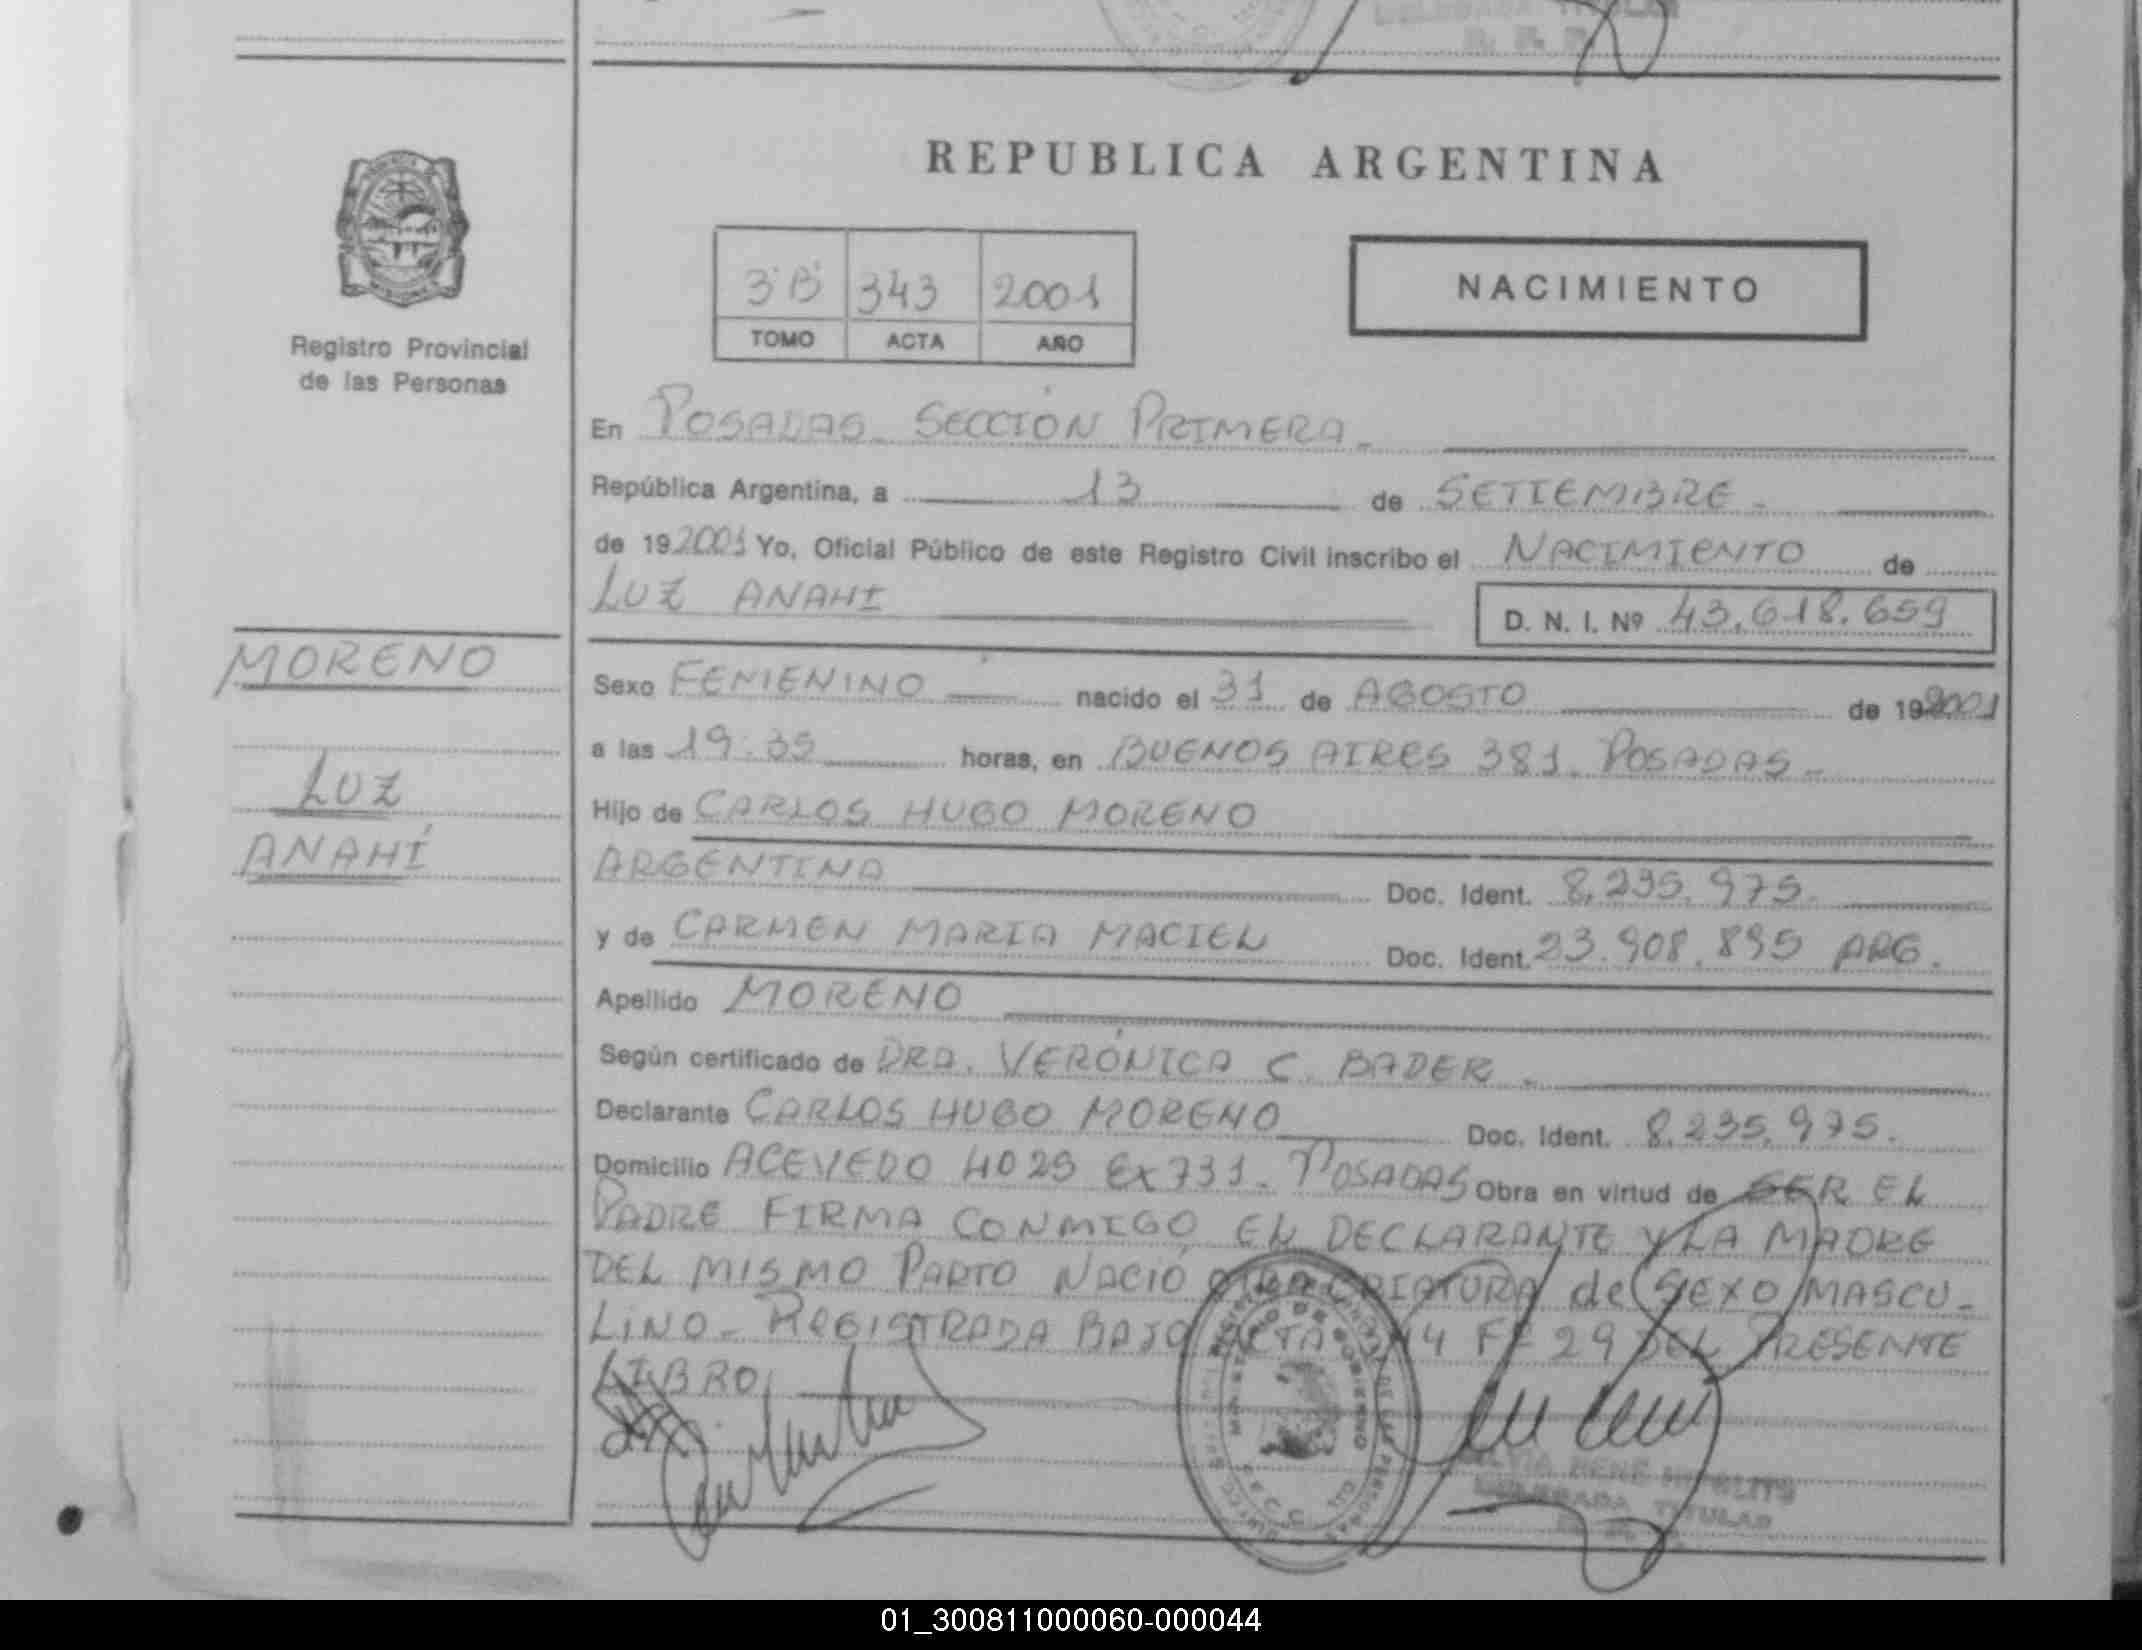 REPUBLICA ARGENTINA
3 B 343 2001
TOMO ACTA AÑO
NACIMIENTO
Registro Provincial
de las Personas
En POSADAS. SECCIÓN PRIMERA.
República Argentina, a 13 de SETIEMBRE.
de 19 2001 Yo, Oficial Público de este Registro Civil inscribo el NACIMIENTO de
LUZ ANAHI
D. N. I. Nº 43.618.659
MORENO
LUZ
ANAHÍ
Sexo FEMENINO nacido el 31 de AGOSTO de 19 2001
a las 19:35 horas, en BUENOS AIRES 381. POSADAS.
Hijo de CARLOS HUGO MORENO
ARGENTINA Doc. Ident. 8.235.975.
y de CARMEN MARIA MACIEL Doc. Ident. 23.908.895 ARG.
Apellido MORENO
Según certificado de DRA. VERÓNICA C. BADER.
Declarante CARLOS HUGO MORENO Doc. Ident. 8.235.975.
Domicilio ACEVEDO 4029 EX 731. POSADAS Obra en virtud de SER EL
PADRE FIRMA CONMIGO EL DECLARANTE Y LA MADRE
DEL MISMO PARTO NACIÓ OTRA CRIATURA de SEXO MASCU-
LINO. REGISTRADA BAJO ACTA 29 DEL PRESENTE
LIBRO.
DELEGADA TITULAR
01_300811000060-000044